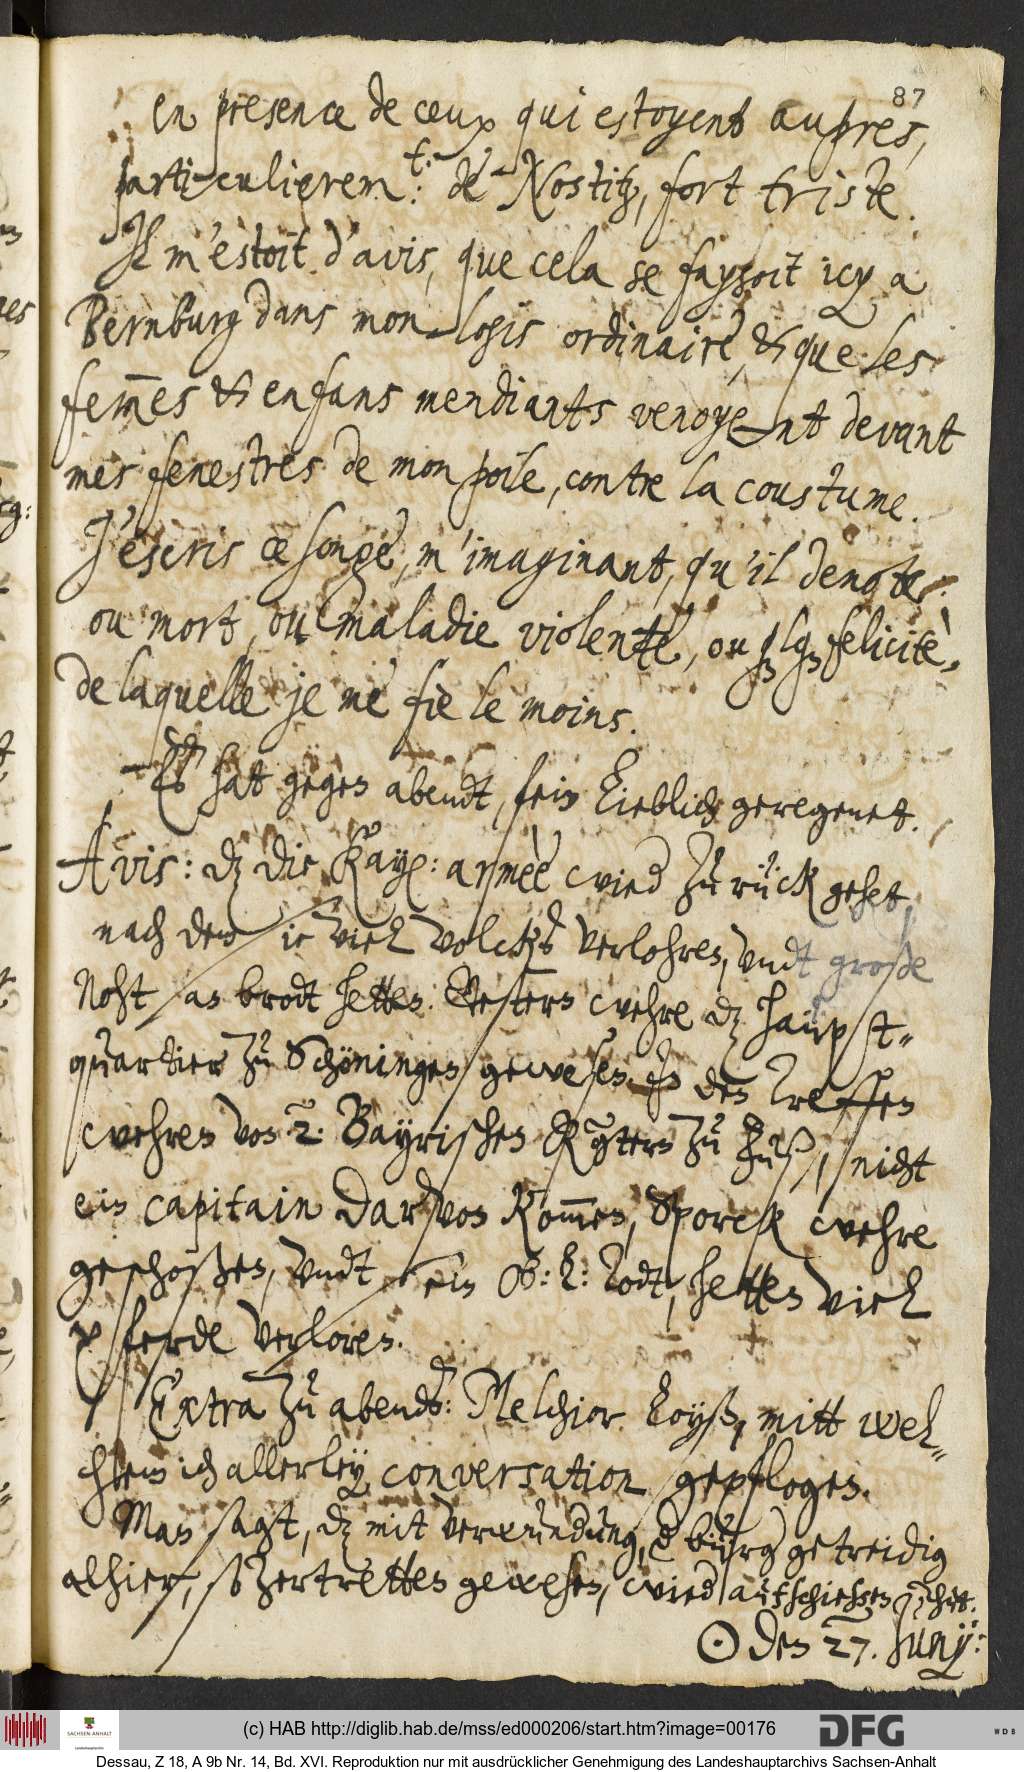 87
en presence de ceux qui estoyent aupres,
particulierem.t: de Nostitz, fort triste.
Il m'estoit d'avis, que cela se faysoit icy a
Bernburg dans mon logis ordinaire, & que les
fem̅es & enfans mendiants venoyent devant
mes fenestres de mon poile, contre la coustume.
J'escris ce songe, m'imaginant, qu'il denote:
ou mort, ou maladie violente, ou qlq felicitè,
de laquelle je me fie le moins.
Es hat gegen abendt, fein lieblich geregenet.
Avis: dz die Kayß: armèè wied zu rück gehet,
nach dem ie viel volcks verlohren, undt große
Noht an brodt hetten. Gestern wehre dz haüpt-
quartier zu Schöningen gewesen. In den treffen
wehren von 2. Bayrischen Rgtern zu fuß, nicht
ein capitain darvon kom̅en, Sporck wehre
geschoßen, undt sein Ob: L: todt, hetten viel
pferde verloren.
Extra zu abends: Melchior Loyß, mitt wel-
chem ich allerley conversation gepflogen.
Man sagt, dz mit verwundung, d bürg getreidig
alhier, so zertretten gewesen, wied aufschießen
☉ den 27. Junij:
(c) HAB http://diglib.hab.de/mss/ed000206/start.htm?image=00176
SACHSEN-ANHALT
DFG
WDB
Dessau, Z 18, A 9b Nr. 14, Bd. XVI. Reproduktion nur mit ausdrücklicher Genehmigung des Landeshauptarchivs Sachsen-Anhalt